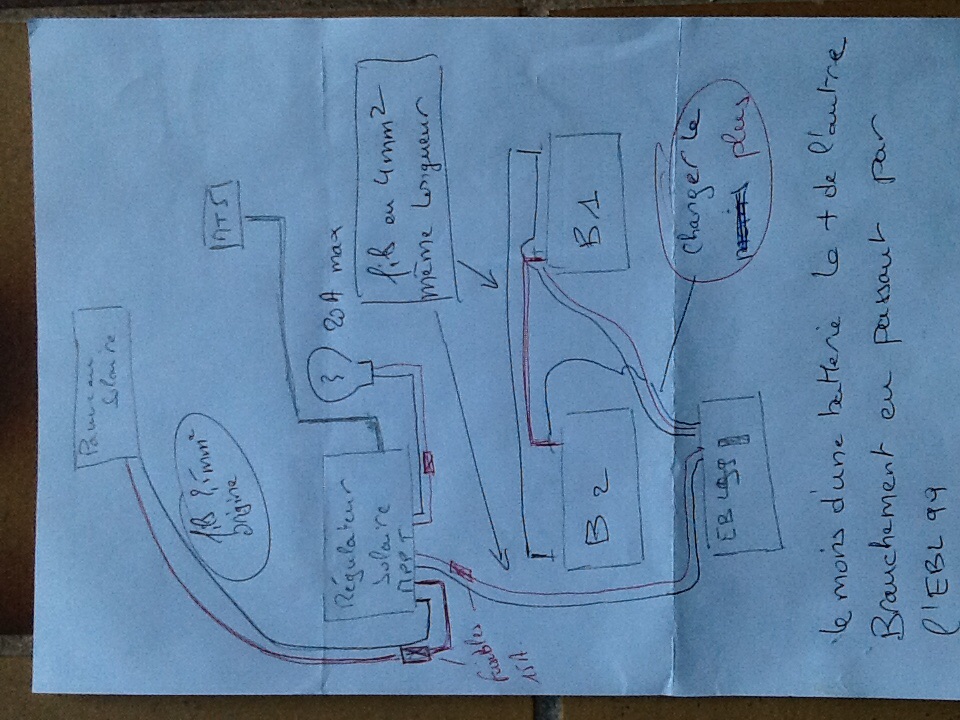 Panneau
solaire
fils 2,5mm²
origine
MT5
Régulateur
solaire
MPPT
20A max
fils en 4mm²
même longueur
fusibles
15A
B2
B1
Changer le
plus
EBL99
le moins d'une batterie le + de l'autre
Branchement en passant par
l'EBL 99